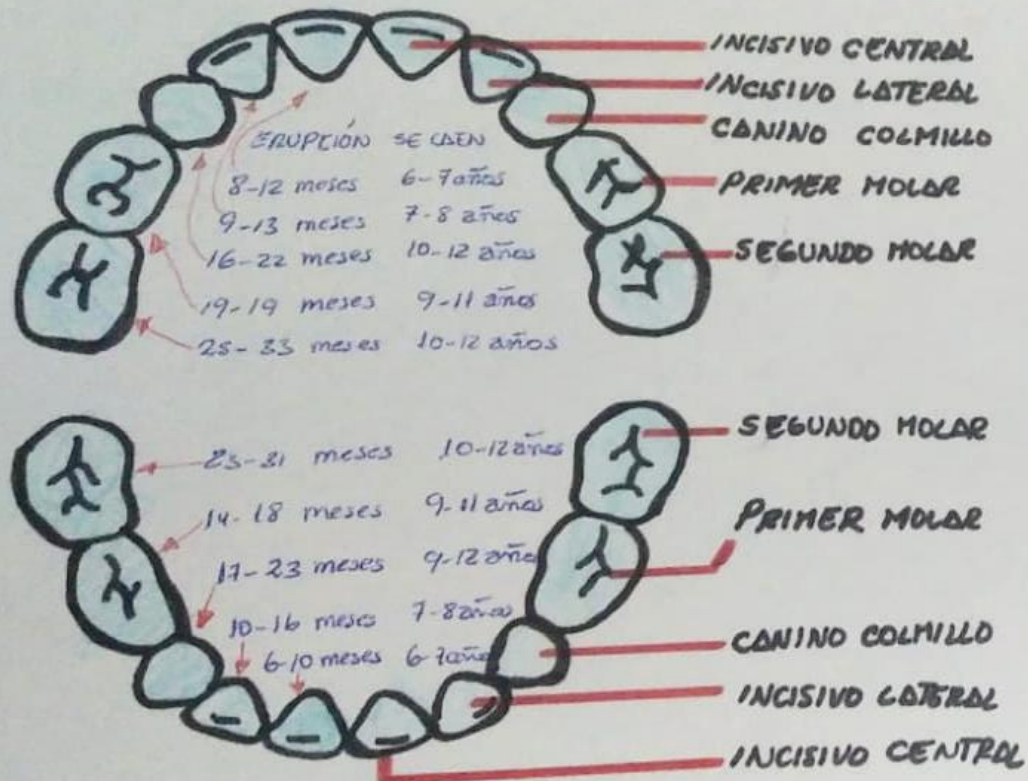 INCISIVO CENTRAL
INCISIVO LATERAL
CANINO COLMILLO
PRIMER MOLAR
SEGUNDO MOLAR
ERUPCIÓN SE CAEN
8-12 meses 6-7 años
9-13 meses 7-8 años
16-22 meses 10-12 años
19-19 meses 9-11 años
25-33 meses 10-12 años
23-31 meses 10-12 años
14-18 meses 9-11 años
17-23 meses 9-12 años
10-16 meses 7-8 años
6-10 meses 6-7 años
SEGUNDO MOLAR
PRIMER MOLAR
CANINO COLMILLO
INCISIVO LATERAL
INCISIVO CENTRAL